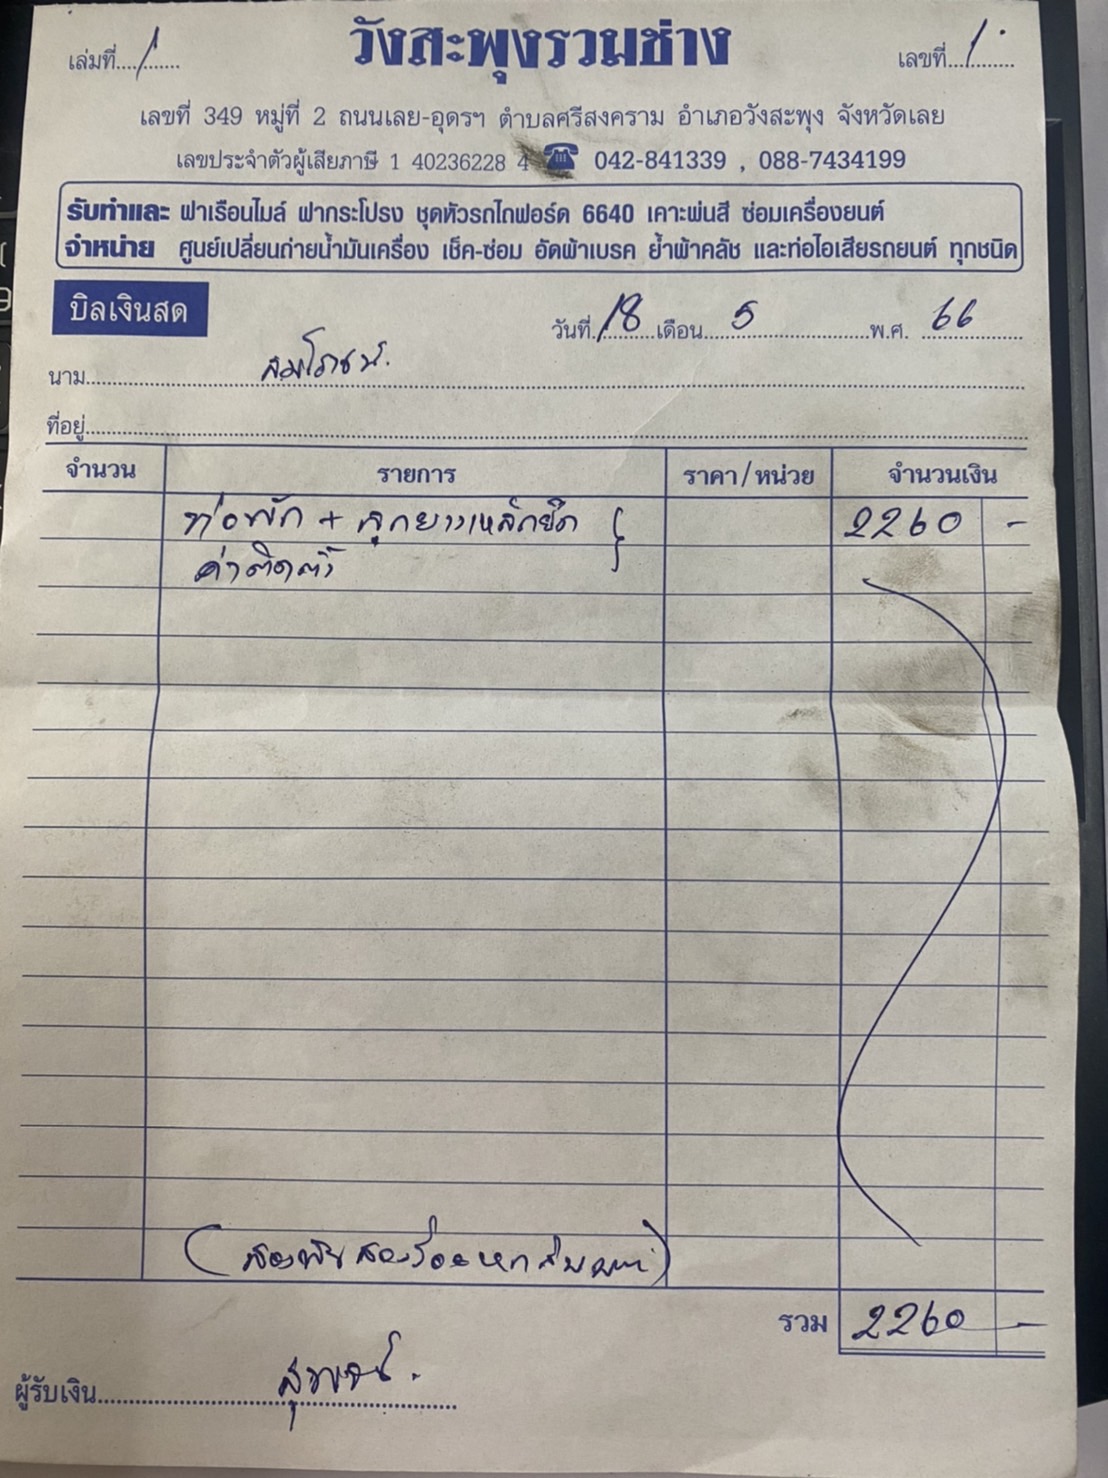 วังสะพุงรวมช่าง
เล่มที่....1....... เลขที่....1.......
เลขที่ 349 หมู่ที่ 2 ถนนเลย-อุดรฯ ตำบลศรีสงคราม อำเภอวังสะพุง จังหวัดเลย
เลขประจำตัวผู้เสียภาษี 1 40236228 4 ☎ 042-841339 , 088-7434199
รับทำและ ฝาเรือนไมล์ ฝากระโปรง ชุดหัวรถไถฟอร์ด 6640 เคาะพ่นสี ซ่อมเครื่องยนต์
จำหน่าย ศูนย์เปลี่ยนถ่ายน้ำมันเครื่อง เช็ค-ซ่อม อัดผ้าเบรค ย้ำผ้าคลัช และท่อไอเสียรถยนต์ ทุกชนิด
บิลเงินสด
วันที่ 18 เดือน 5 พ.ศ. 66
นาม
ที่อยู่
จำนวน รายการ ราคา/หน่วย จำนวนเงิน
ท่อพัก + ลูกยางเหล็กยึด } 2260 -
ค่าติดตั้ง
(สองพันสองร้อยหกสิบบาท)
รวม 2260 -
ผู้รับเงิน